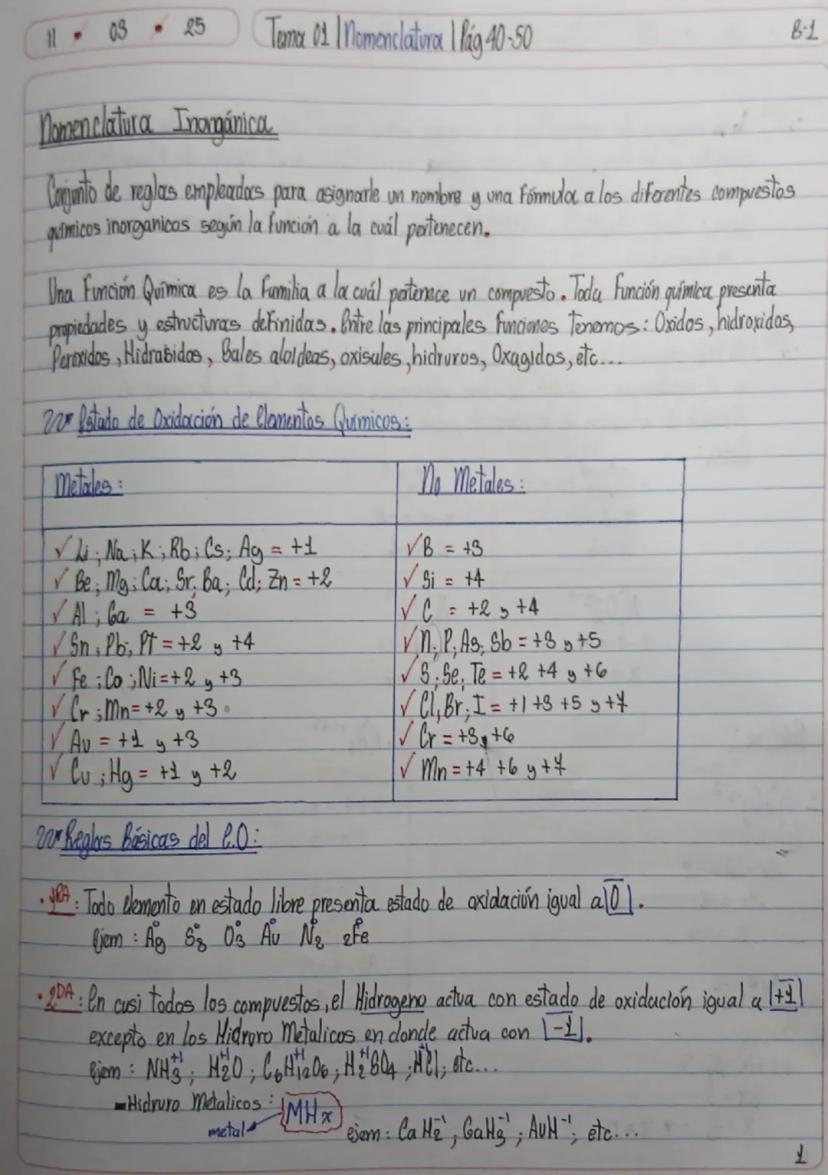 11 • 03 • 25
Tema 01 | Nomenclatura | Pág 40-50
B-1
Nomenclatura Inorgánica
Conjunto de reglas empleadas para asignarle un nombre y una Fórmula a los diferentes compuestos
químicos inorganicos según la función a la cuál pertenecen.
Una Función Química es la Familia a la cuál pertenece un compuesto. Toda Función química presenta
propiedades y estructuras definidas. Entre las principales funciones Tenemos: Oxidos, hidroxidos,
Peroxidos, Hidracidos, Sales aloideas, oxisales, hidruros, Oxacidos, etc...
Estado de Oxidación de Elementos Químicos:
Metales:
No Metales:
✓ Li; Na; K; Rb; Cs; Ag = +1
✓ B = +3
✓ Be; Mg; Ca; Sr; Ba; Cd; Zn = +2
✓ Si = +4
✓ Al; Ga = +3
✓ C = +2 y +4
✓ Sn; Pb; Pt = +2 y +4
✓ N; P; As; Sb = +3 y +5
✓ Fe; Co; Ni = +2 y +3
✓ S; Se; Te = +2 +4 y +6
✓ Cr; Mn = +2 y +3
✓ Cl, Br; I = +1 +3 +5 y +7
✓ Au = +1 y +3
✓ Cr = +3 y +6
✓ Cu; Hg = +1 y +2
✓ Mn = +4 +6 y +7
Reglas Básicas del E.O:
• 1RA: Todo elemento en estado libre presenta estado de oxidación igual a |0|.
Ejem: Ag° S8° O3° Au° N2° 2Fe°
• 2DA: En casi todos los compuestos, el Hidrogeno actua con estado de oxidación igual a |+1|
excepto en los Hidruro Metalicos en donde actua con |-1|.
Ejem: NH3+1; H2+1O; C6H12+1O6; H2+1SO4; H+1Cl; etc...
- Hidruro Metalicos: MHx
metal
ejem: CaH2-1, GaH3-1; AuH-1; etc...
1